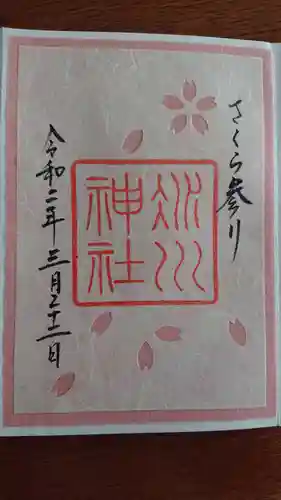 さくら参り
冰川
神社
令和二年三月二十二日